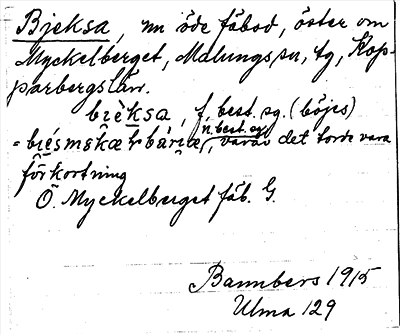 Bjeksa, nu öde fäbod, öster om
Myckelberget, Malungs sn, tg, Kop-
parbergs län.
bièksa, f. best. sg. (böjes)
n. best. sg.
= biésmskæłrbáriæ, varav det torde vara
förkortning
Ö. Myckelberget fäb. G.
Bannbers 1915
Ulma 129